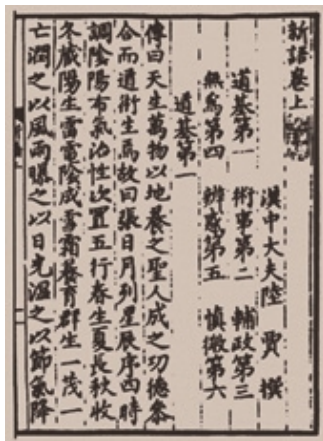 新語卷上
漢中大夫陸賈撰
道基第一 術事第二 輔政第三
無為第四 辨惑第五 慎微第六
道基第一
傳曰天生萬物以地養之聖人成之功德參
合而道術生焉故曰張日月列星辰序四時
調陰陽布氣治性次置五行春生夏長秋收
冬藏陽生雷電陰成雪霜養育群生一茂一
亡潤之以風雨曝之以日光溫之以節氣降